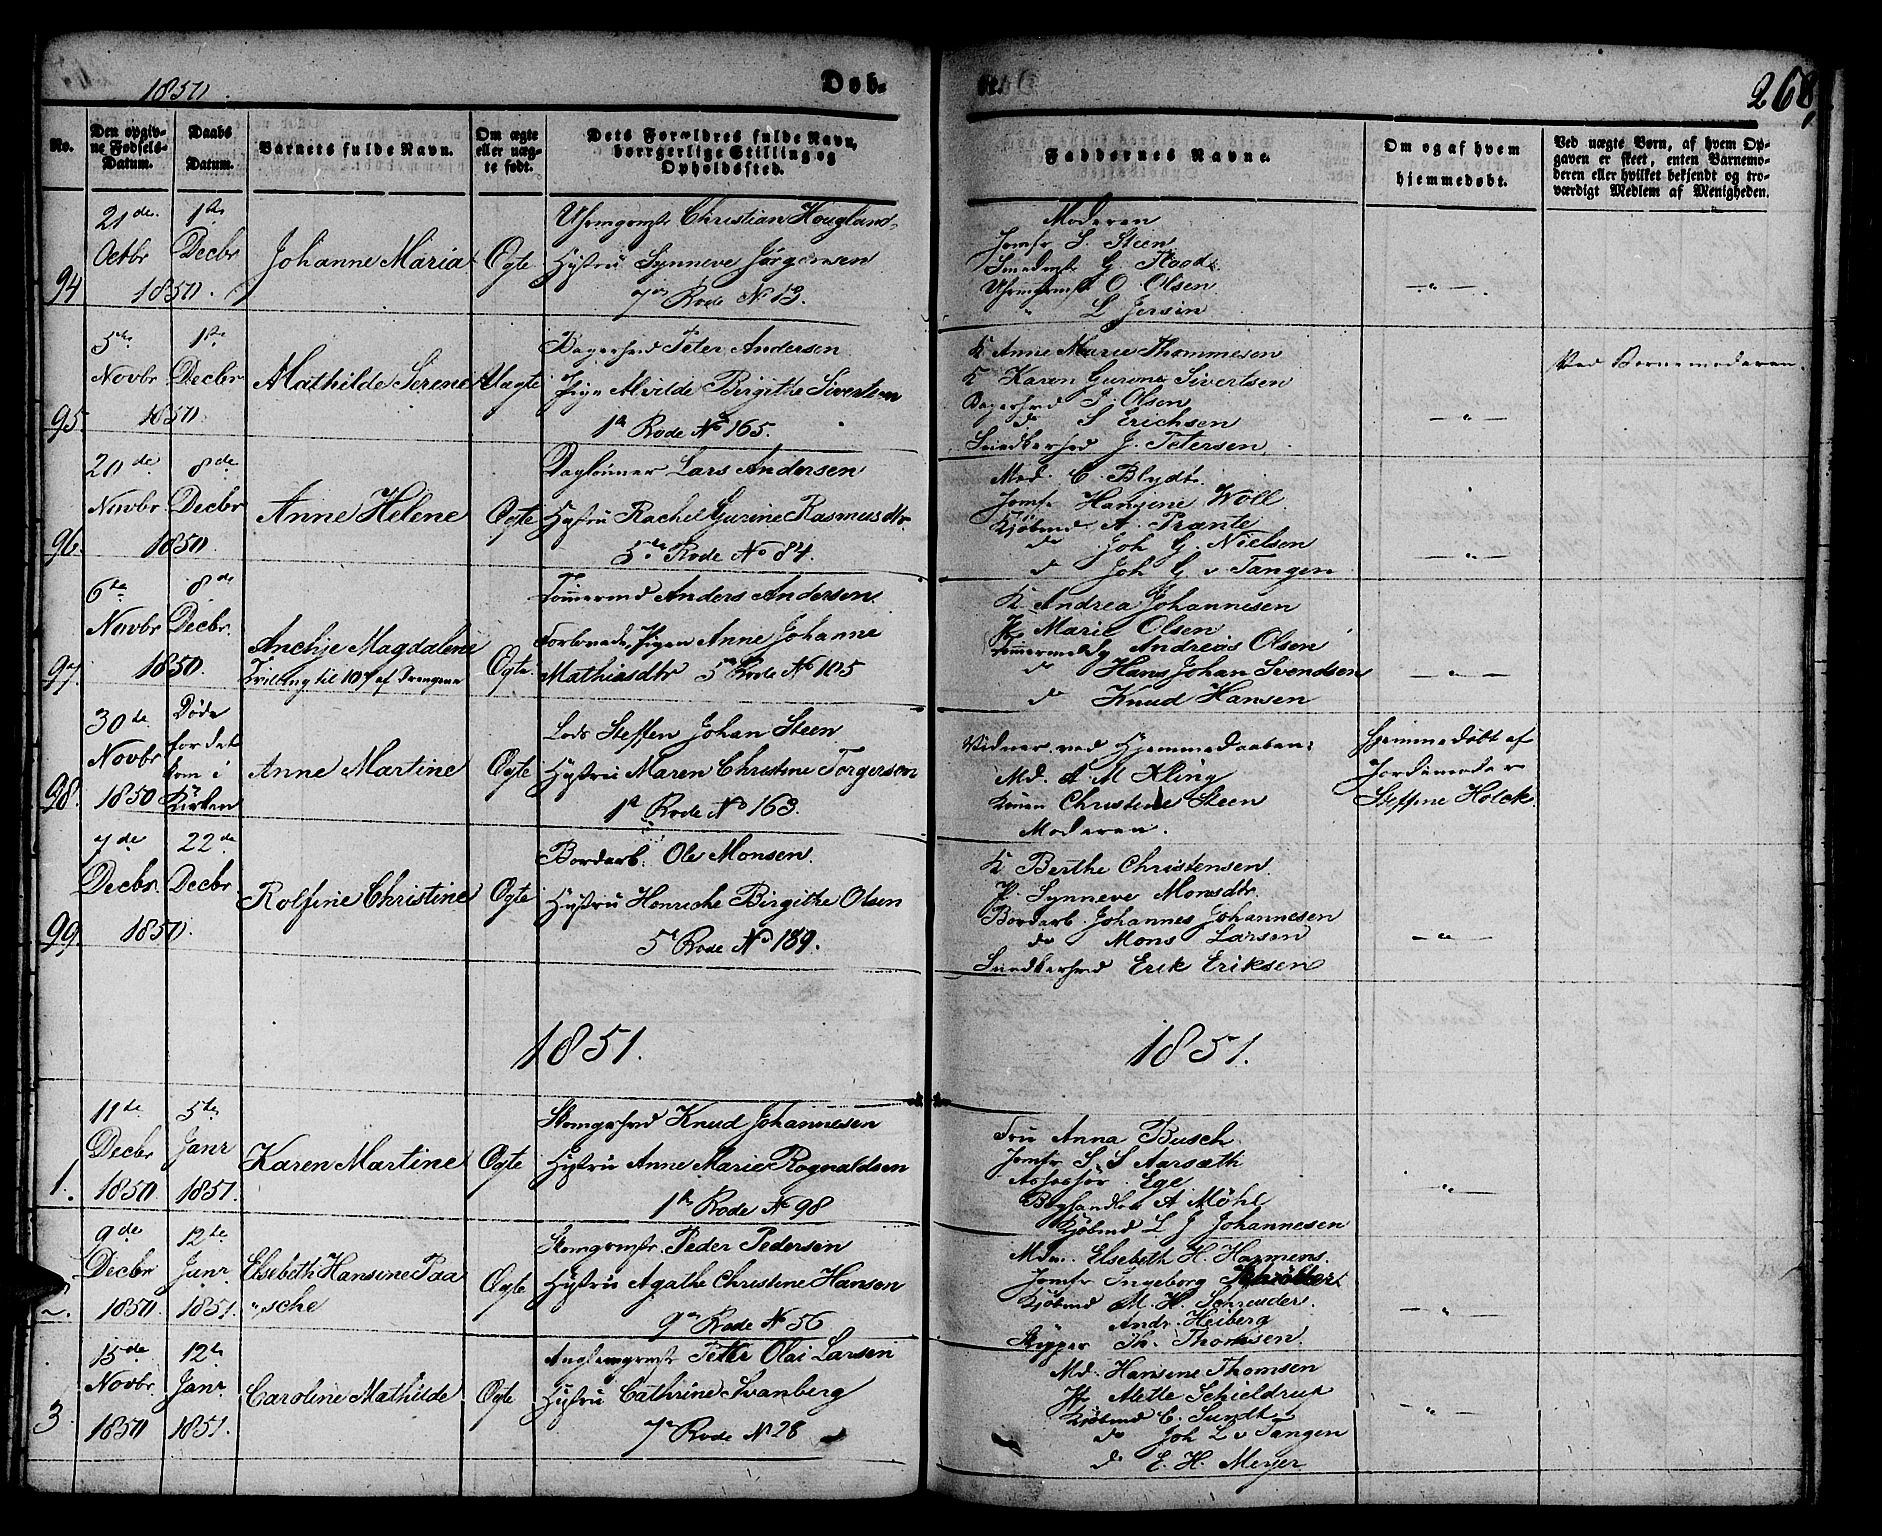 1850.
Døb-
te.
268,
No.
Den opgiv-
ne Fødsels-
Datum.
Daabs
Datum.
Barnets fulde Navn.
Om ægte
eller uæg-
te født.
Dets Forældres fulde Navn,
borgerlige Stilling og
Opholdssted.
Faddernes Navne.
Om og af hvem
hjemmedøbt.
Ved uægte Børn, af hvem Op-
gaven er skeet, enten Barnemo-
deren eller hvilket bekjendt og tro-
værdigt Medlem af Menigheden.
94
21de
Octbr
1850.
1ste
Decbr
Johanne Maria
Ægte
Christian Hougland
Hustru Synneve Jörgensen
7de Rode No 13.
Moderen
Jomfr S. Steen
G. Flood
O. Olsen
L Jersin
95.
5te
Novbr
1850.
1ste
Decbr
Mathilde Serene
Uægte
Bagersvd Peter Andersen
Pige Alvilde Birgithe Sivertsen
1ste Rode No 165.
K Anne Marie Thommesen
K Karen Gurine Sivertsen
Bagersvd J. Olsen
do S Erichsen
Snedkersvd J. Petersen
Ved Barnemoderen.
96.
20de
Novbr
1850.
8de
Decbr
Anne Helene
Ægte
Daglönner Lars Andersen
Hustru Rachel Gurine Rasmusdtr
5te Rode No 84.
Mad. C. Blydt.
Jomfr Hansine Woll
Kjöbmd A. Prante
do Joh G. Nielsen
do Joh G v Tangen
97.
6te
Novbr
1850.
8de
Decbr.
Anchje Magdalene
Tvilling til 107 af Drengene
Ægte
Tömmermd Anders Andersen.
Forlovede Pigen Anne Johanne
Mathiasdtr 5te Rode No 105
K Andrea Johannesen
P Marie Olsen
Tömmermd Andreas Olsen
do Hans Johan Svendsen
do Knud Hansen
98.
30de
Novbr
1850
Döde
för det
kom i
Kirken
Anne Martine
Ægte
Lods Steffen Johan Steen
Hustru Maren Christine Torgersen
1ste Rode No 163.
Vidner ved Hjemmedaaben:
Md. A M Kling
Konen Christine Steen
Moderen.
Hjemmedöbt af
Jordemoder
Steffine Holck
99.
7de
Decbr
1850.
22de
Decbr
Rolfine Christine
Ægte
Bordarb. Ole Monsen.
Hustru Henriche Birgithe Olsen
5te Rode No 189.
K Berthe Christensen
P. Synneve Monsdtr.
Bordarb Johannes Johannesen
do Mons Larsen
Snedkersvd Erik Eriksen
1851.
1851.
1.
11te
Decbr
1850
5te
Janr
1851.
Karen Martine
Ægte
Knud Johannesen
Hustru Anne Marie Rognaldsen
1ste Rode No 98
Fru Anna Busch
Jomfr S S Aarsæth
Assessor Ege
Boghandler A Möhl
Kjöbmd L J Johannesen
2.
9de
Decbr
1850.
12te
Janr
1851.
Elsebeth Hansine Paa
"sche
Ægte
Peder Pedersen
Hustru Agathe Christine Hansen
9de Rode No 56
Mdm. Elsebeth H. Harmens.
Jomfr Ingeborg Schröbler
Kjöbmd M. H. Schreuder.
Andr. Heiberg
Skipper Th. Thomsen.
3
15de
Novbr
1850
12te
Janr
1851.
Caroline Mathilde
Ægte
Petter Olai Larsen
Hustru Cathrine Svanberg
7de Rode No 28
Md. Hansine Thomsen
Jfr Mette Schieldrup
Kjöbmd C. Sundt
do Joh L v Tangen
do E. H. Meyer